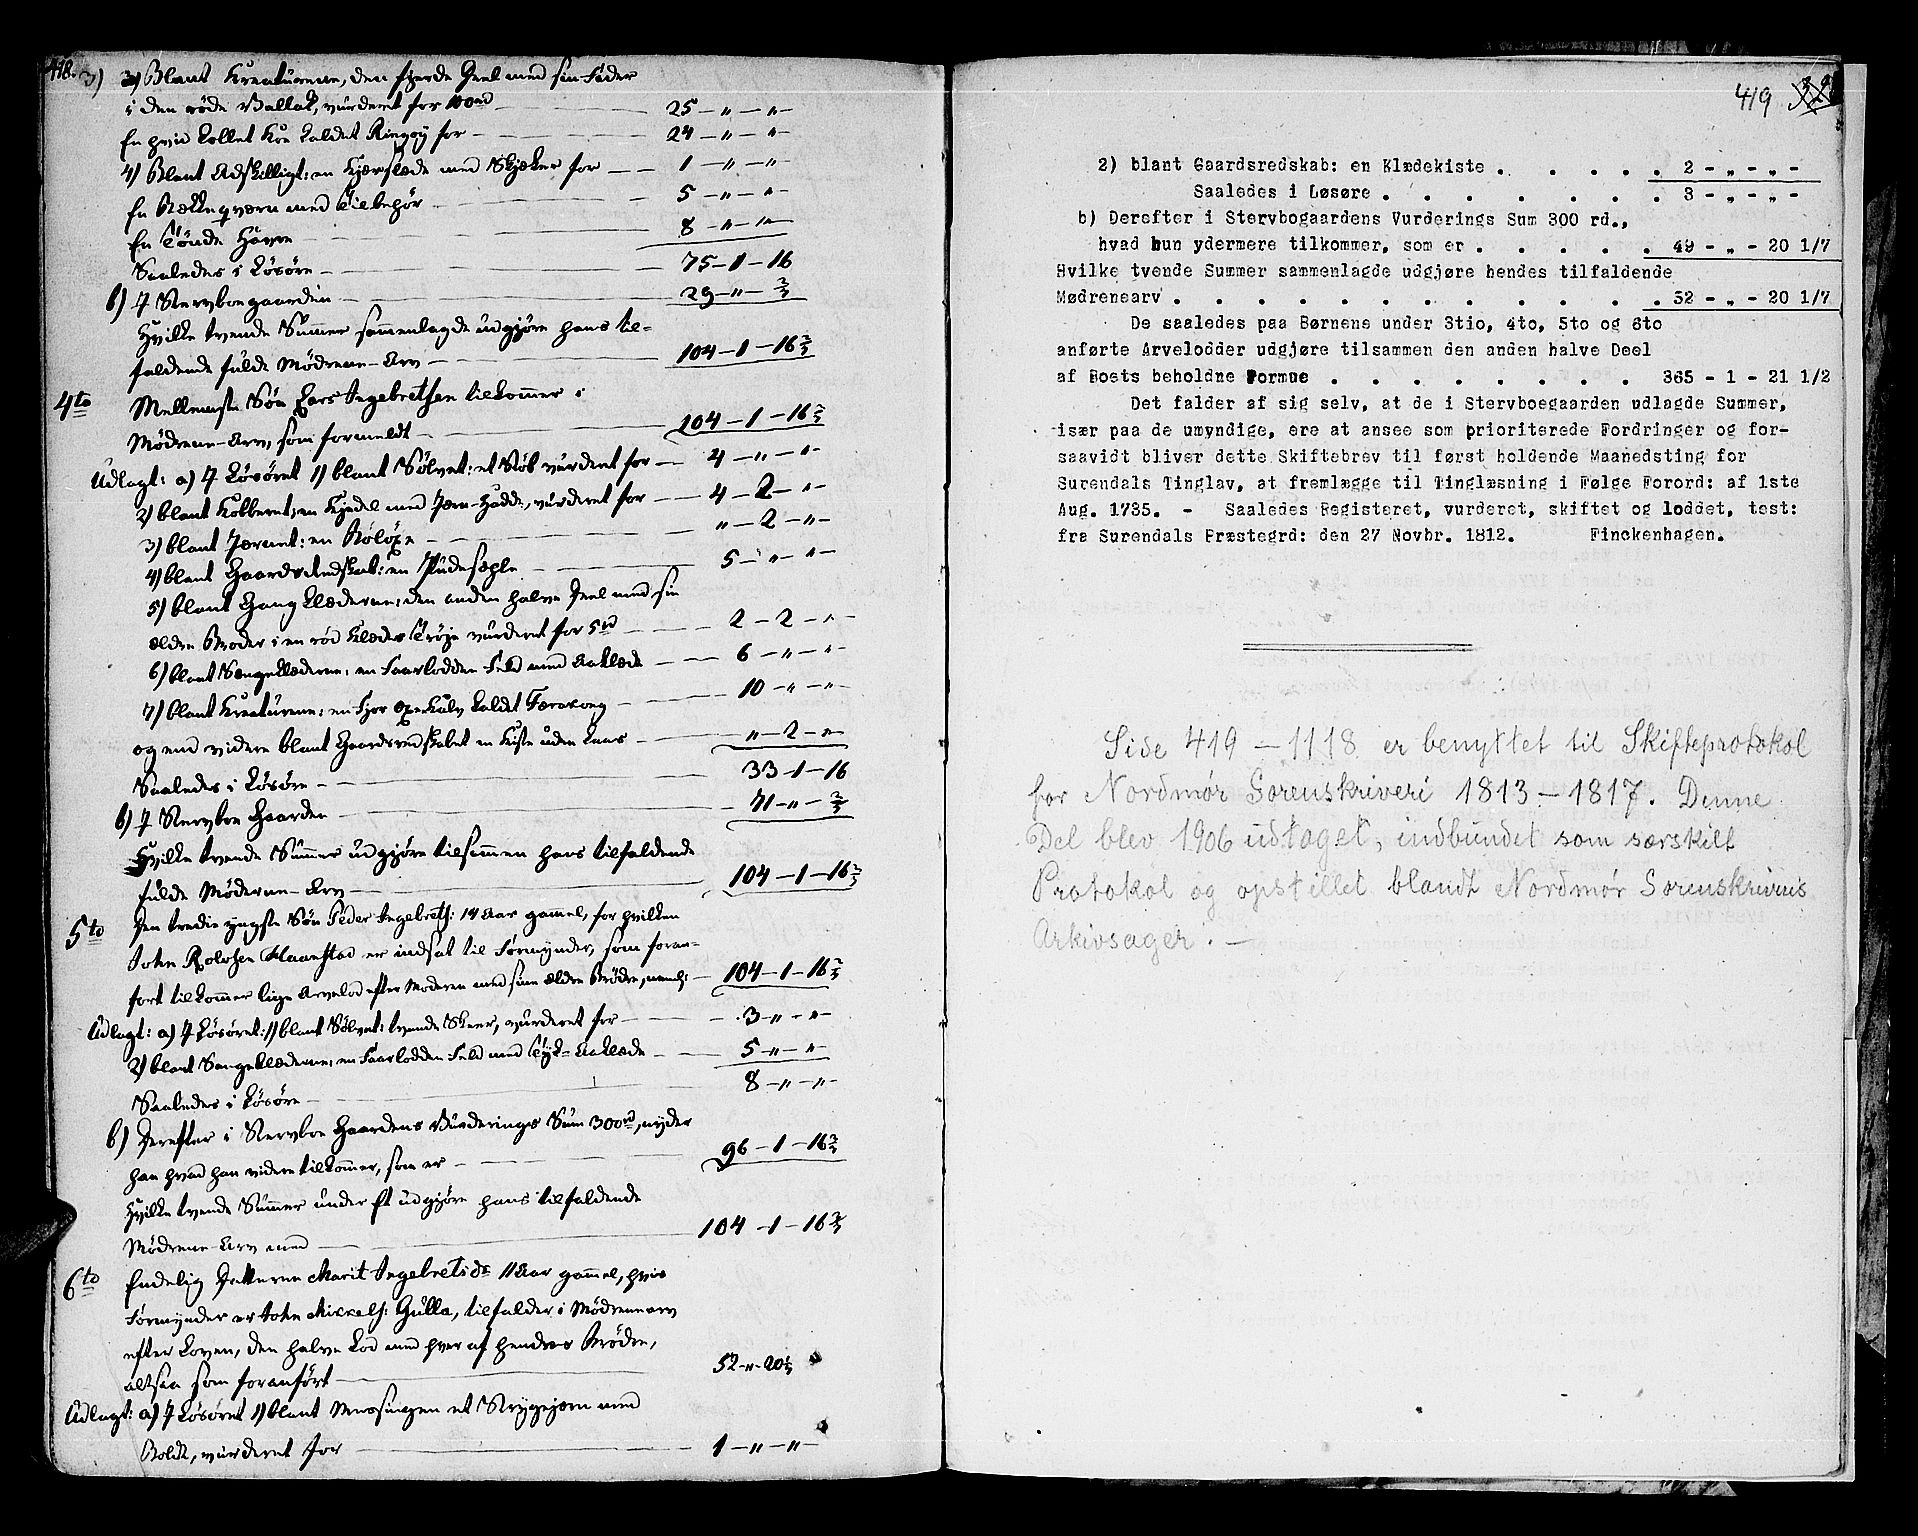 418.
3) 3) Blant Kreaturene, den fjerde Deel med sin Fader
i den røde Vallak, vurderet for 100 rd — 25 — „ — „ —
En hvid kollet Koe kaldet Ringøy for — 24 — „ — „ —
4) Blant Adskilligt: en Kjørslæde med Skjæker for — 1 — „ — „ —
En Rækkeqværn med Tilbehør — 5 — „ — „ —
En Tønde Havre — 8 — „ — „ —
Saaledes i Løsøre — 75 — 1 — 16
b) I Stervboegaarden — 29 — „ — 2/3
Hvilke tvende Summer sammenlagde udgjøre hans til-
faldende fulde Mødrene-Arv — 104 — 1 — 16 2/3
4to Mellemste Søn Lars Ingebretsen tilkommer i
Mødrene-Arv, som formeldt — 104 — 1 — 16 2/3
Udlagt: a) I Løsøret 1) blant Sølvet: et Støb vurderet for — 4 — „ — „ —
2) blant Kobberet: en Kjedel med Jærn-Hadde, vurderet for — 4 — 2 — „ —
3) blant Jærnet: en Boløxe — „ — 2 — „ —
4) blant Gaards Redskab: en Pudesæhle — 5 — „ — „ —
5) blant Gangklæderne: den anden halve Deel med sin
ældre Broder i en rød Klædes Trøje vurderet for 5 rd — 2 — 2 — „ —
6) blant Sengeklæderne: en Faarlodden Feld med Aaklæde — 6 — „ — „ —
7) blant Kreaturene: en Fjor Oxe Kalv kaldet — 10 — „ — „ —
og end videre blant Gaardsredskabet en Kiste uden Laas — „ — 2 — „ —
Saaledes i Løsøre — 33 — 1 — 16
b) I Stervboe Gaarden — 71 — „ — 2/3
Hvilke tvende Summer udgjøre tilsammen hans tilfaldende
fulde Møderne-Arv — 104 — 1 — 16 2/3
5to Den tredie yngste Søn Peder Ingebrets: 14 Aar gammel, for hvilken
John Rolvsen Haanstad er indsat til Formynder, som foran-
ført tilkommer liige Arvelod efter Moderen med sine ældre Brødre, neml: — 104 — 1 — 16 2/3
Udlagt: a) I Løsøret: 1) blant Sølvet: tvende Skeer, vurderet for — 3 — „ — „ —
2) blant Sengeklæderne: en Faarlodden Feld med Tyk-Aaklæde — 5 — „ — „ —
Saaledes i Løsøre — 8 — „ — „ —
b) Derefter i Stervboe Gaardens Vurderings Sum 300 rd, nyder
han hvad han videre tilkommer, som er — 96 — 1 — 16 2/3
Hvilke tvende Summer under Et udgjøre hans tilfaldende
Mødrene-Arv med — 104 — 1 — 16 2/3
6to Endelig Datteren Marit Ingebretsdr 11 Aar gammel, hvis
Formynder er John Mikkels: Gulla, tilfalder i Mødrenearv
efter Loven, den halve Lod mod hver af hendes Brødre,
altsaa som foranført — 52 — „ — 20 1/3
Udlagt: a) I Løsøret 1) blant Messingen et Strygejern med
Boldt, vurderet for — 1 — „ — „ —
419
2) blant Gaardsredskab: en Klædekiste . . . . . . 2 - „ - „ -
Saaledes i Løsøre . . . . . . . . . 3 - „ - „ -
b) Derefter i Stervbogaardens Vurderings Sum 300 rd.,
hvad hun ydermere tilkommer, som er . . . . . . 49 - „ - 20 1/7
Hvilke tvende Summer sammenlagde udgjøre hendes tilfaldende
Mødrenearv . . . . . . . . . . . . . 52 - „ - 20 1/7
De saaledes paa Børnene under 3tio, 4to, 5to og 6to
anførte Arvelodder udgjøre tilsammen den anden halve Deel
af Boets beholdne Formue . . . . . . . . 365 - 1 - 21 1/2
Det falder af sig selv, at de i Stervboegaarden udlagde Summer,
især paa de umyndige, ere at ansee som prioriterede Fordringer og for-
saavidt bliver dette Skiftebrev til først holdende Maanedsting for
Surendals Tinglav, at fremlægge til Tinglæsning i Følge Forord: af 1ste
Aug. 1735. - Saaledes Registeret, vurderet, skiftet og loddet, test:
fra Surendals Præstegrd: den 27 Novbr. 1812. Finckenhagen.
Side 419 — 1118 er benyttet til Skifteprotokol
for Nordmør Sorenskriveri 1813 — 1817. Denne
Del blev 1906 udtaget, indbundet som særskilt
Protokol og opstillet blandt Nordmør Sorenskriveris
Arkivsager. —